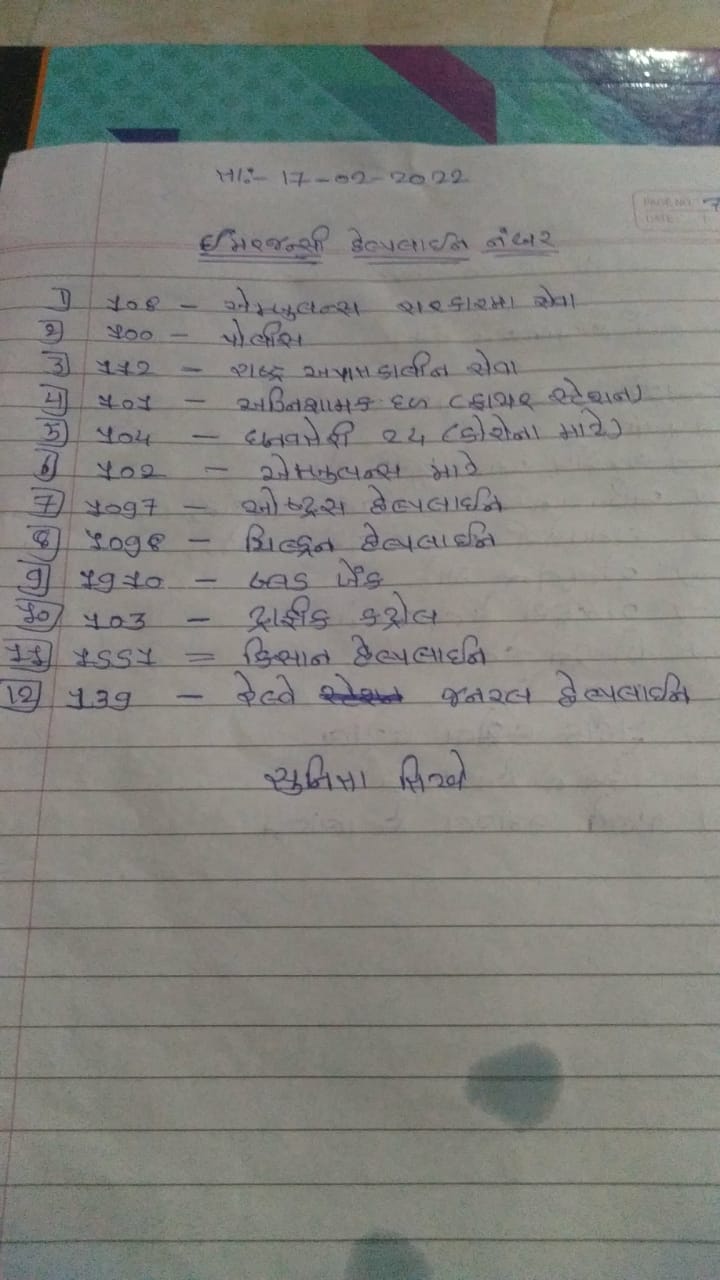 તા:- 17-02-2022
PAGE NO. 7
DATE:
ઈમરજન્સી હેલ્પલાઈન નંબર
1) 108 - એમબુલન્સ સરકારમા સેવા
2) 100 - પોલીસ
3) 112 - રાષ્ટ્ર અપાતકાલીન સેવા
4) 101 - અગ્નિશામક દળ (ફાયર સ્ટેશન)
5) 104 - 24 (કોરોના માટે)
6) 102 - એમબુલન્સ માટે
7) 1097 - એઇડ્સ હેલ્પલાઈન
8) 1098 - ચિલ્ડ્રન હેલ્પલાઈન
9) 1910 - બ્લડ બેંક
10) 103 - ટ્રાફીક કંટ્રોલ
11) 1551 = કિસાન હેલ્પલાઈન
12) 139 - રેલ્વે જનરલ હેલ્પલાઈન